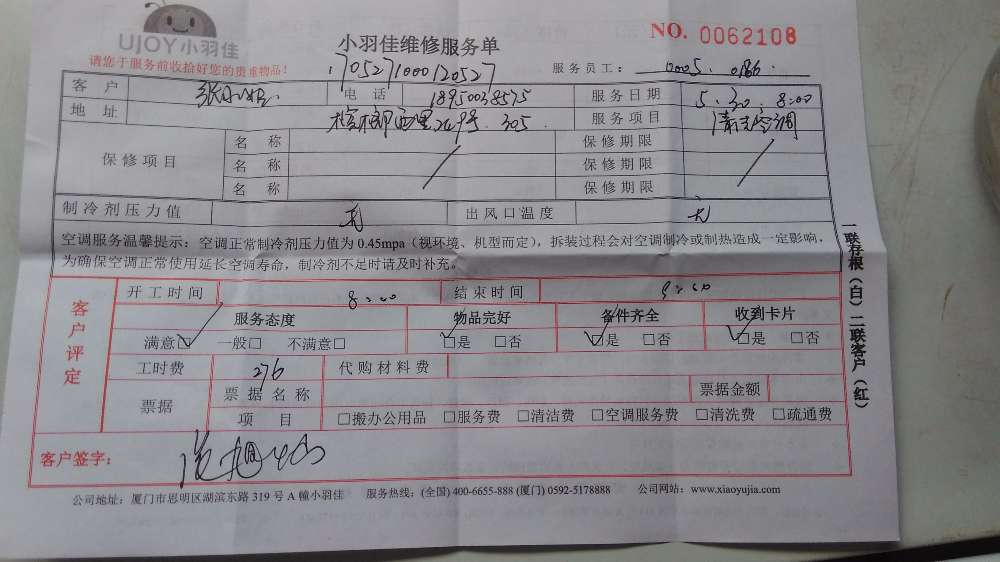 UJOY小羽佳
小羽佳维修服务单
NO. 0062108
请您于服务前收拾好您的贵重物品!
170527100012 0527
服务员工:
客户 张小姐 电话 18950038575 服务日期 5.30.8:00
地址 西里249号.305 服务项目 清洗空调
保修项目 名称 保修期限
名称 保修期限
名称 保修期限
制冷剂压力值 无 出风口温度 无
空调服务温馨提示:空调正常制冷剂压力值为 0.45mpa(视环境、机型而定),拆装过程会对空调制冷或制热造成一定影响,
为确保空调正常使用延长空调寿命,制冷剂不足时请及时补充。
客户评定
开工时间 8:00 结束时间 9:00
服务态度 物品完好 备件齐全 收到卡片
满意☑ 一般□ 不满意□ ☑是 □否 ☑是 □否 ☑是 □否
工时费 276 代购材料费
票据 票据名称 票据金额
项目 □搬办公用品 □服务费 □清洁费 □空调服务费 □清洗费 □疏通费
客户签字:
公司地址:厦门市思明区湖滨东路 319 号 A 幢小羽佳 服务热线:(全国) 400-6655-888 (厦门) 0592-5178888 公司网站:www.xiaoyujia.com
一联存根(白)二联客户(红)